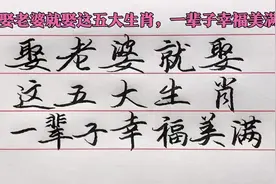 娶老婆就娶这五大生肖，一辈子幸福美满
娶老婆就娶
这五大生肖
一辈子幸福美满